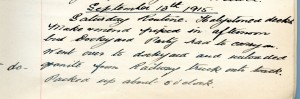 September 18th 1915.
Saturday Routine. Holystoned decks
Make and mend piped in afternoon
but Dockyard Party had to carry on.
Went over to dockyard and unloaded
do- granite from Railway truck onto truck.
Packed up about 5 o'clock.